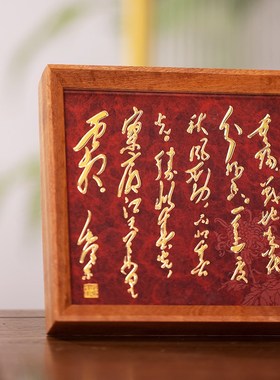 战地黄花
分外香。一年一度
秋风劲,不似春
光。胜似春光,
寥廓江天
万里霜。
毛泽东